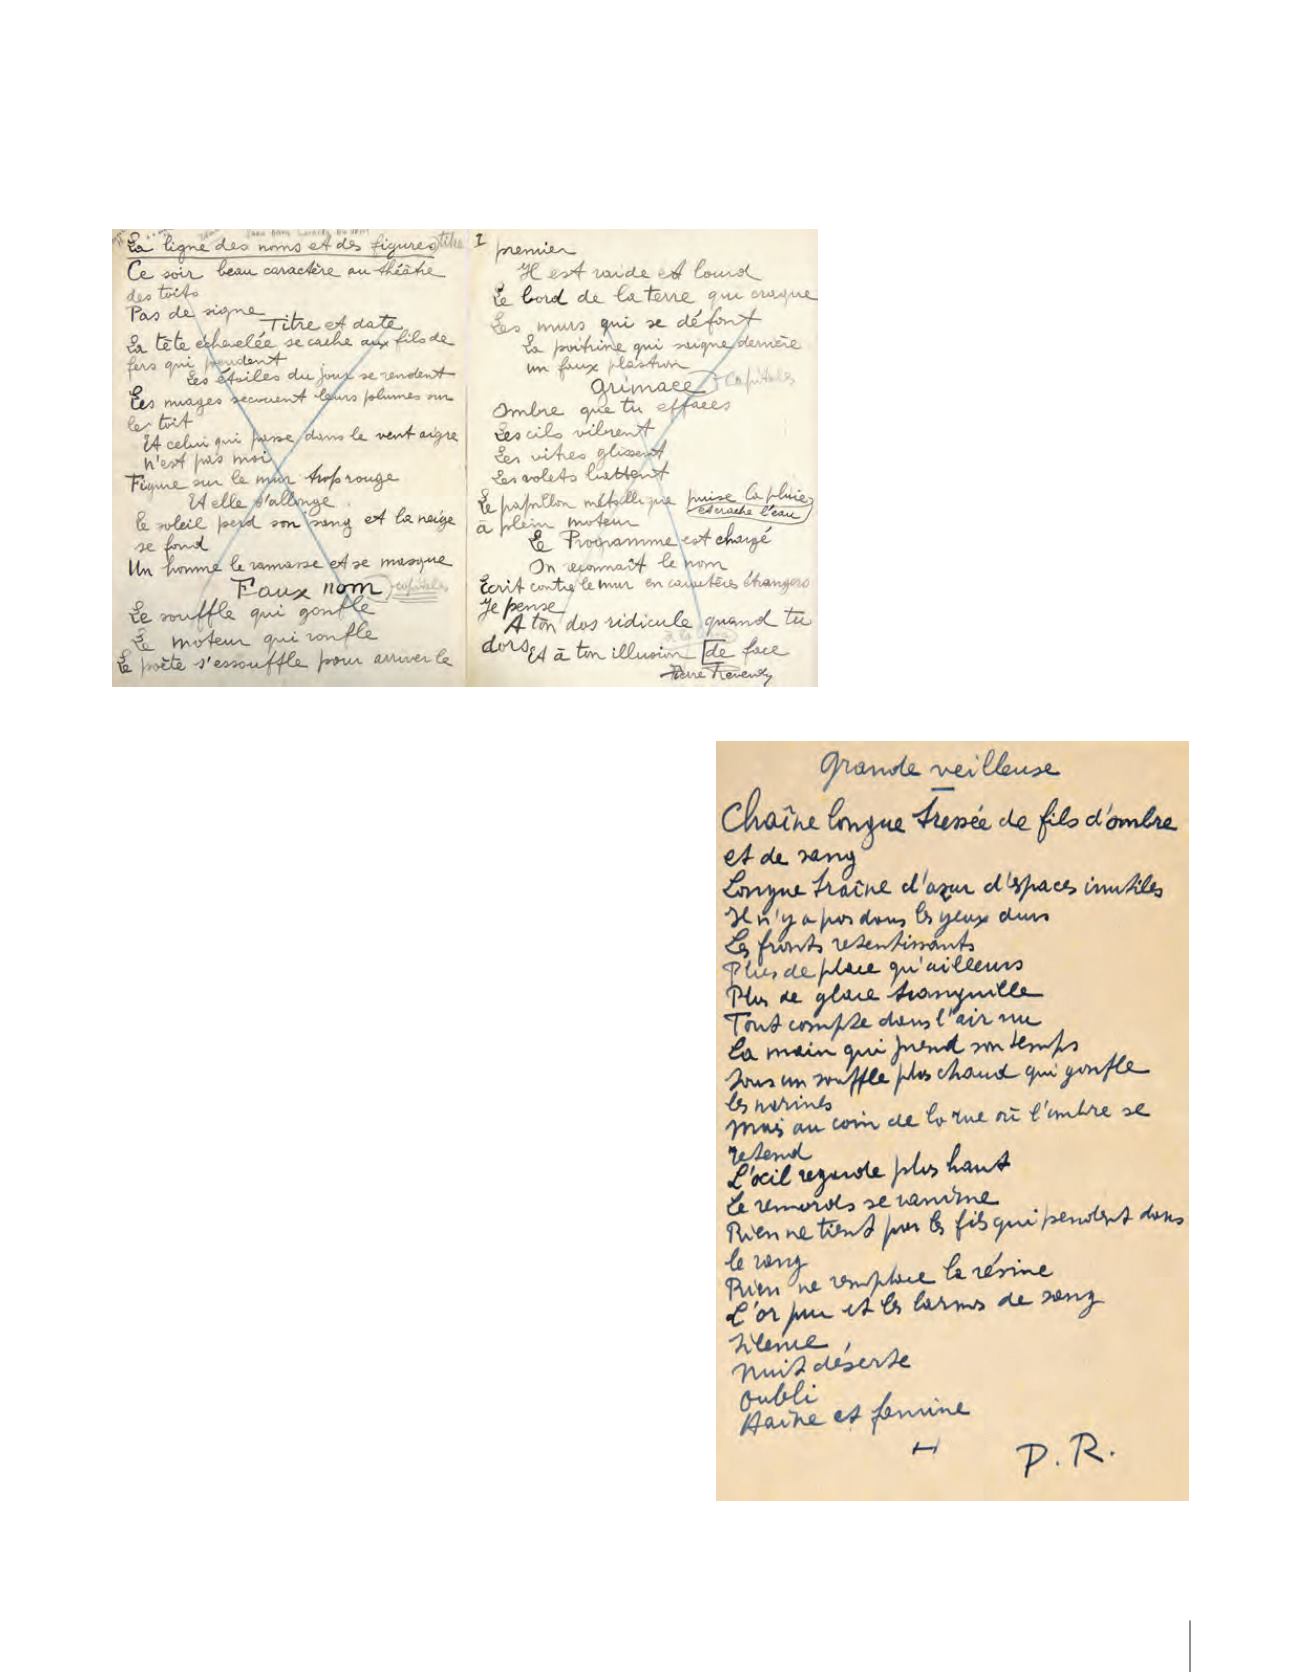 La ligne des noms et des figures titre
Ce soir beau caractère au théâtre
des toits
Pas de signe
Titre et date
La tête échevelée se cache aux fils de
fers qui pendent
Les étoiles du jour se rendent
Les nuages secouent leurs plumes sur
le toit
Et celui qui passe dans le vent aigre
n'est pas moi
Figure sur le mur trop rouge
Et elle s'allonge
le soleil perd son sang et la neige
se fond
Un homme le ramasse et se masque
Faux nom capitales
Le souffle qui gonfle
Le moteur qui ronfle
Le poète s'essouffle pour arriver le
I
premier
Il est raide et lourd
Le bord de la terre qui craque
Les murs qui se défont
La poitrine qui saigne derrière
un faux plastron
Grimace capitales
Ombre que tu effaces
Les cils vibrent
Les vitres glissent
Les volets battent
Le papillon métallique puise la pluie
et crache l'eau
à plein moteur
Le Programme est chargé
On reconnaît le nom
Ecrit contre le mur en caractères étrangers
Je pense
A ton dos ridicule quand tu
dors
Et à ton illusion de face
Pierre Reverdy
Grande veilleuse
Chaîne longue tressée de fils d'ombre
et de sang
Longue traîne d'azur d'espaces inutiles
Il n'y a pas dans les yeux durs
Les fronts retentissants
Plus de place qu'ailleurs
Plus de glace tranquille
Tout compte dans l'air nu
La main qui prend son temps
Sous un souffle plus chaud qui gonfle
les narines
Mais au coin de la rue où l'ombre se
retend
L'œil regarde plus haut
Le remords se ranime
Rien ne tient par les fils qui pendent dans
le rang
Rien ne remplace la résine
L'or pur et les larmes de sang
Silence
Nuit déserte
Oubli
Haine et famine
P. R.